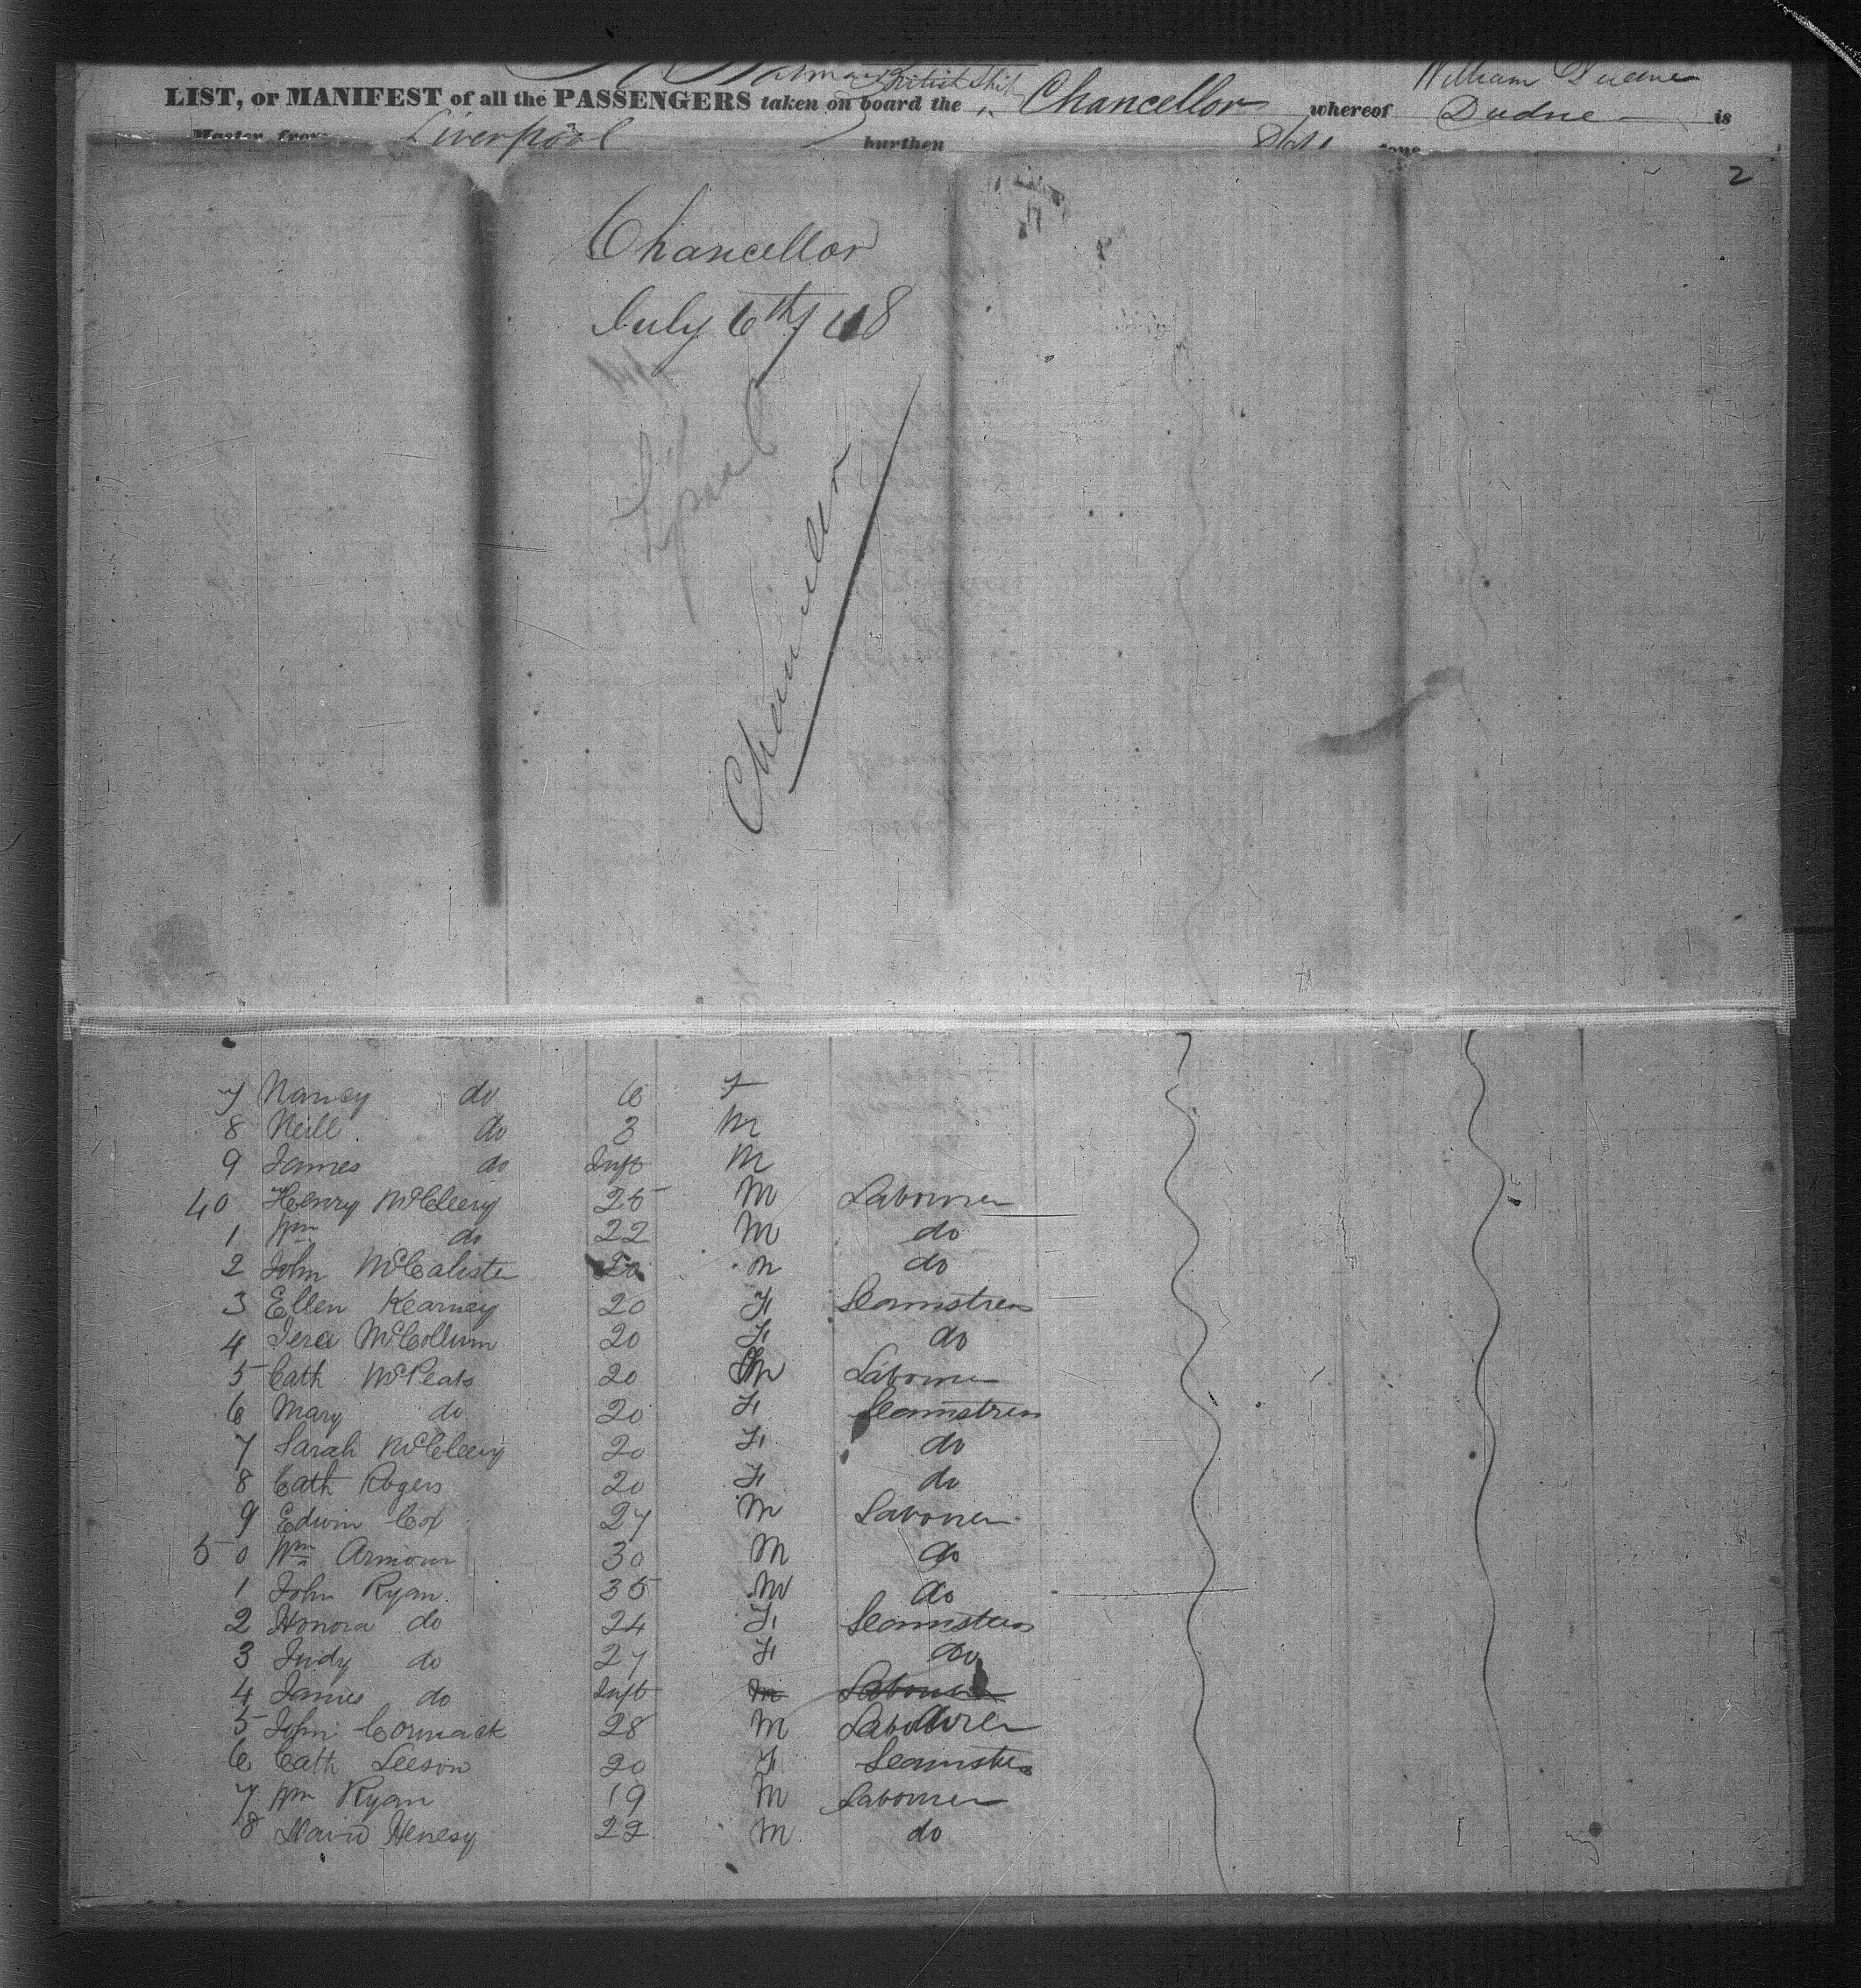 William Dudne
British Ship
LIST, or MANIFEST of all the PASSENGERS taken on board the Chancellor whereof Dudne is
Master, from Liverpool burthen tons
2
Chancellor
July 6th / 68
L'pool
Chancellor
7 Nancy do 6 F
8 Neill do 3 M
9 James do Inft M
40 Henry McCleery 25 M Labourer
1 Wm do 22 M do
2 John McCalister 20 M do
3 Ellen Kearney 20 F Seamstress
4 McCollum 20 F do
5 Cath McPeak 20 M Labourer
6 Mary do 20 F Seamstress
7 Sarah McCleery 20 F do
8 Cath Rogers 20 F do
9 Edwin Cox 27 M Labourer
50 Wm Armour 30 M do
1 John Ryan 35 M do
2 Honora do 24 F Seamstress
3 Judy do 27 F do
4 James do Inft M Labourer
5 John Cormack 28 M Labourer
6 Cath Leeson 20 F Seamstress
7 Wm Ryan 19 M Labourer
8 David Henesy 22 M do